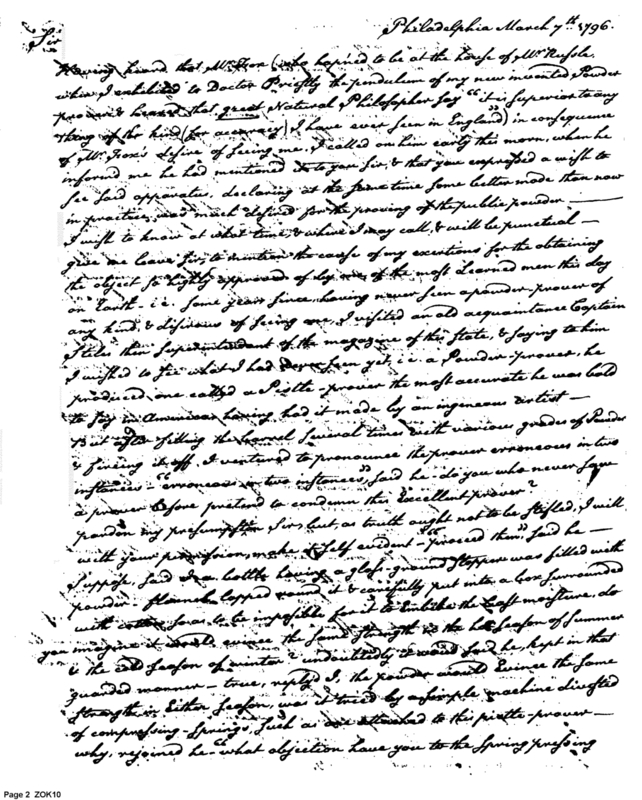 Philadelphia March 7th 1796.
Sir
Having heard that Mr. Frox (who hapined to be at the house of Mr. Russle
when I exhibited to Doctor Priestly the pendulum of my new invented Powder
prover & heard that great Natural Philosopher say "it is superior to any
thing of the kind (for accuracy) I have ever seen in England") in consequence
of Mr. Frox's desire of seeing me, I called on him early this morn, when he
informed me he had mentioned it to you Sir, & that you expressed a wish to
see said apparatus, declaring at the same time some better mode than now
in practice, was much desired for the proving of the public powder —
I wish to know at what time & where I may call, & will be punctual —
give me leave Sir, to mention the cause of my exertions for the obtaining
the object so highly approved of by one of the most Learned men this day
on Earth. i.e. some years since, having never seen a powder-prover of
any kind, & disirous of seeing one, I visited an old acquantance Captain
Stiles then Superintendant of the magazine of this State, & saying to him
I wished to see what I had never seen yet, i.e. a Powder-prover, he
produced one called a Pistle-prover the most accurate he was bold
to say in America, having had it made by an ingeneous artist —
But after filling the barrel several times with various grades of Powder
& fireing it off, I ventured to pronounce the prover erroneous in two
instances — "erroneous in two instances", said he — do you who never saw
a prover before pretend to condemn this Excellent prover?
pardon my presumption Sir, but, as truth ought not to be stifled, I will
with your permission, make it self evident — "proceed then" said he —
Suppose, said I a bottle having a glass-ground Stopper was filled with
powder — flannel lapped round it & carefully put into a box surrounded
with cotton so as to be impossible for it to Embibe the least moisture, do
you imagine it would evince the same strength in the hot season of Summer
& the cold season of winter? undoubtedly it would said he, kept in that
guarded manner — true, reply'd I, the powder would Evince the same
strength in Either season, was it tried by a simple machine divested
of compressing-springs, such as are attached to this pistle-prover —
why, rejoined he — what objection have you to the spring pressing
Page 2 ZOK10